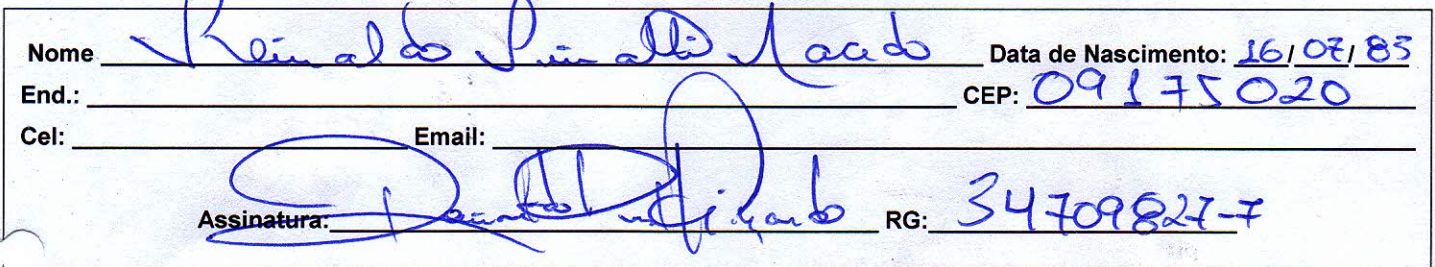 Nome Reinaldo Macedo Data de Nascimento: 16/07/83
End.: CEP: 09175020
Cel: Email:
Assinatura: RG: 34709827-7